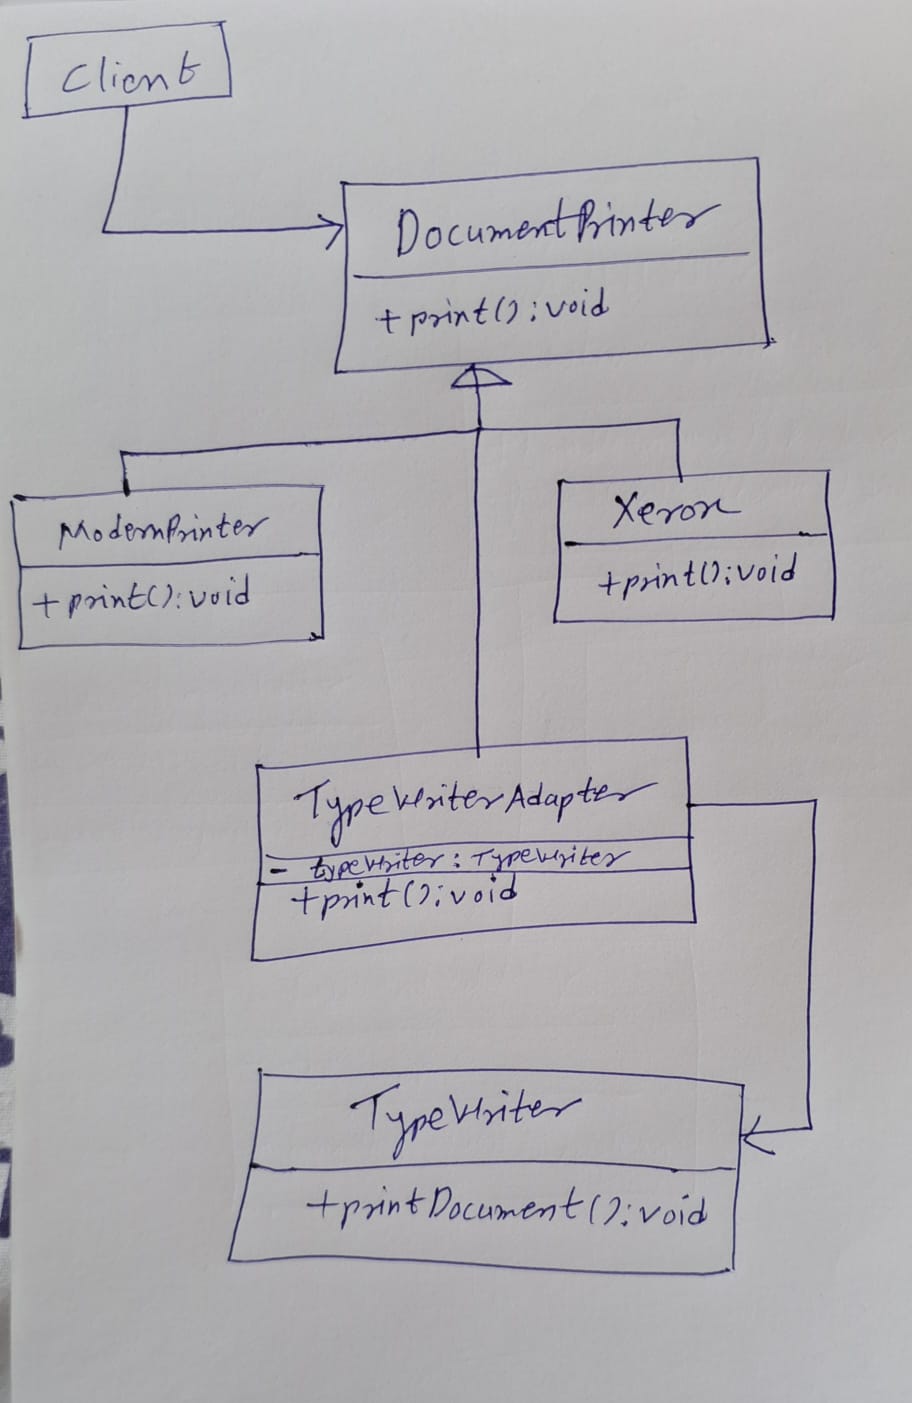 Client
DocumentPrinter
+print():void
ModernPrinter
+print():void
Xerox
+print():void
TypeWriterAdapter
- typeWriter: TypeWriter
+print():void
TypeWriter
+printDocument():void